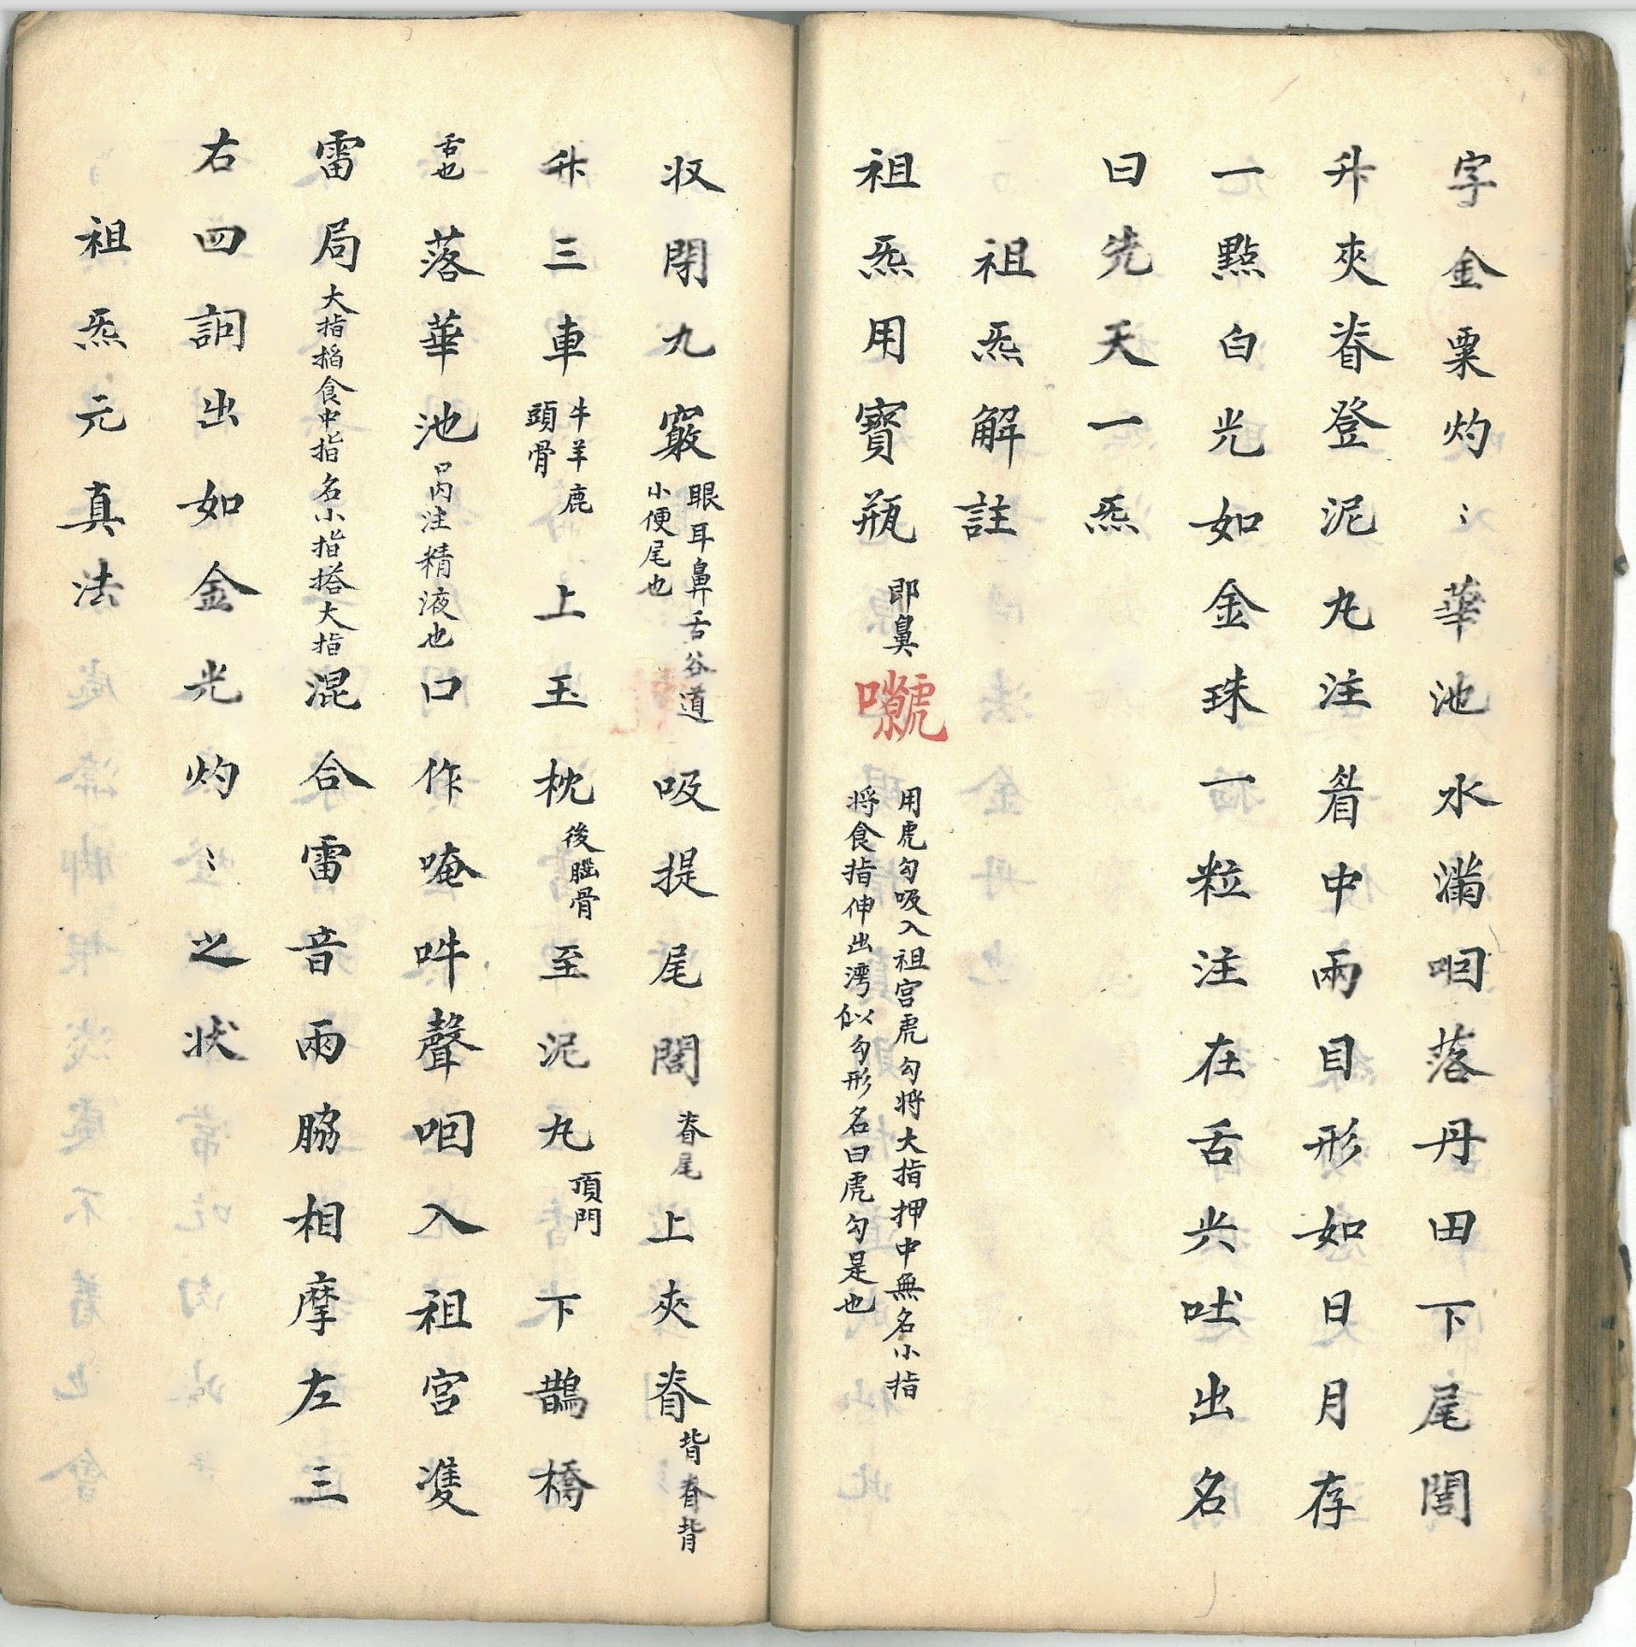 字金粟灼〻華池水滿咽落丹田下尾閭
升夾脊登泥丸注着中兩目形如日月存
一點白光如金珠一粒注在舌尖吐出名
曰先天一炁
祖炁解註
祖炁用寶瓶
即鼻
用虎勾吸入祖宮虎勾將大指押中無名小指
將食指伸出湾似勾形名曰虎勾是也
収閉九竅
眼耳鼻舌谷道
小便尾也
吸提尾閭
脊尾
上夾脊
背脊背
升三車
牛羊鹿
頭骨
上玉枕
後腦骨
至泥丸
頂門
下鵲橋
舌也
落華池
口內注精液也
口作唵吽聲咽入祖宮雙
雷局
大指掐食中指名小指搭大指
混合雷音兩脇相摩左三
右四訶出如金光灼〻之状
祖炁元真法